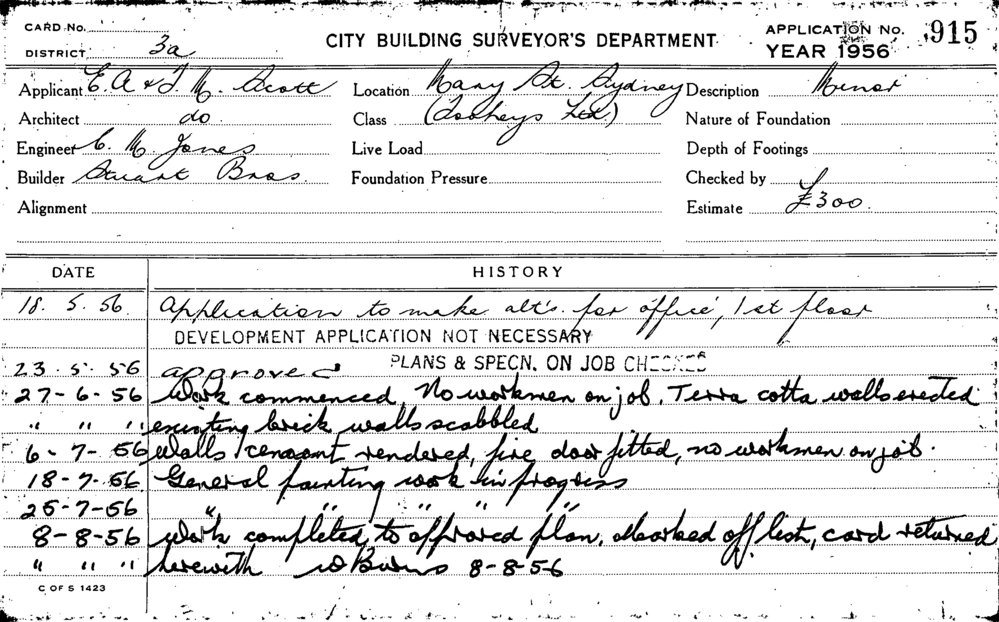 CARD No.
DISTRICT 3a
CITY BUILDING SURVEYOR'S DEPARTMENT
APPLICATION No. 915
YEAR 1956
Applicant E. A & T. M. Scott
Location Mary St. Sydney
Description Minor
Architect do
Class (Tooheys Ltd.)
Nature of Foundation
Engineer C. M. Jones
Live Load
Depth of Footings
Builder Stuart Bros.
Foundation Pressure
Checked by
Alignment
Estimate £300.
DATE HISTORY
18. 5. 56. Application to make alt's. for office, 1st floor
DEVELOPMENT APPLICATION NOT NECESSARY
23. 5. 56 approved PLANS & SPECN. ON JOB CHECKED
27-6-56 Work commenced, No workmen on job. Terra cotta walls erected
" " " existing brick walls scabbled
6-7-56 Walls cement rendered, fire door fitted, no workmen on job.
18-7-56 General painting work in progress
25-7-56 " " " " "
8-8-56 Work completed to approved plan. Marked off list, card returned
" " " herewith W Burns 8-8-56
C OF S 1423